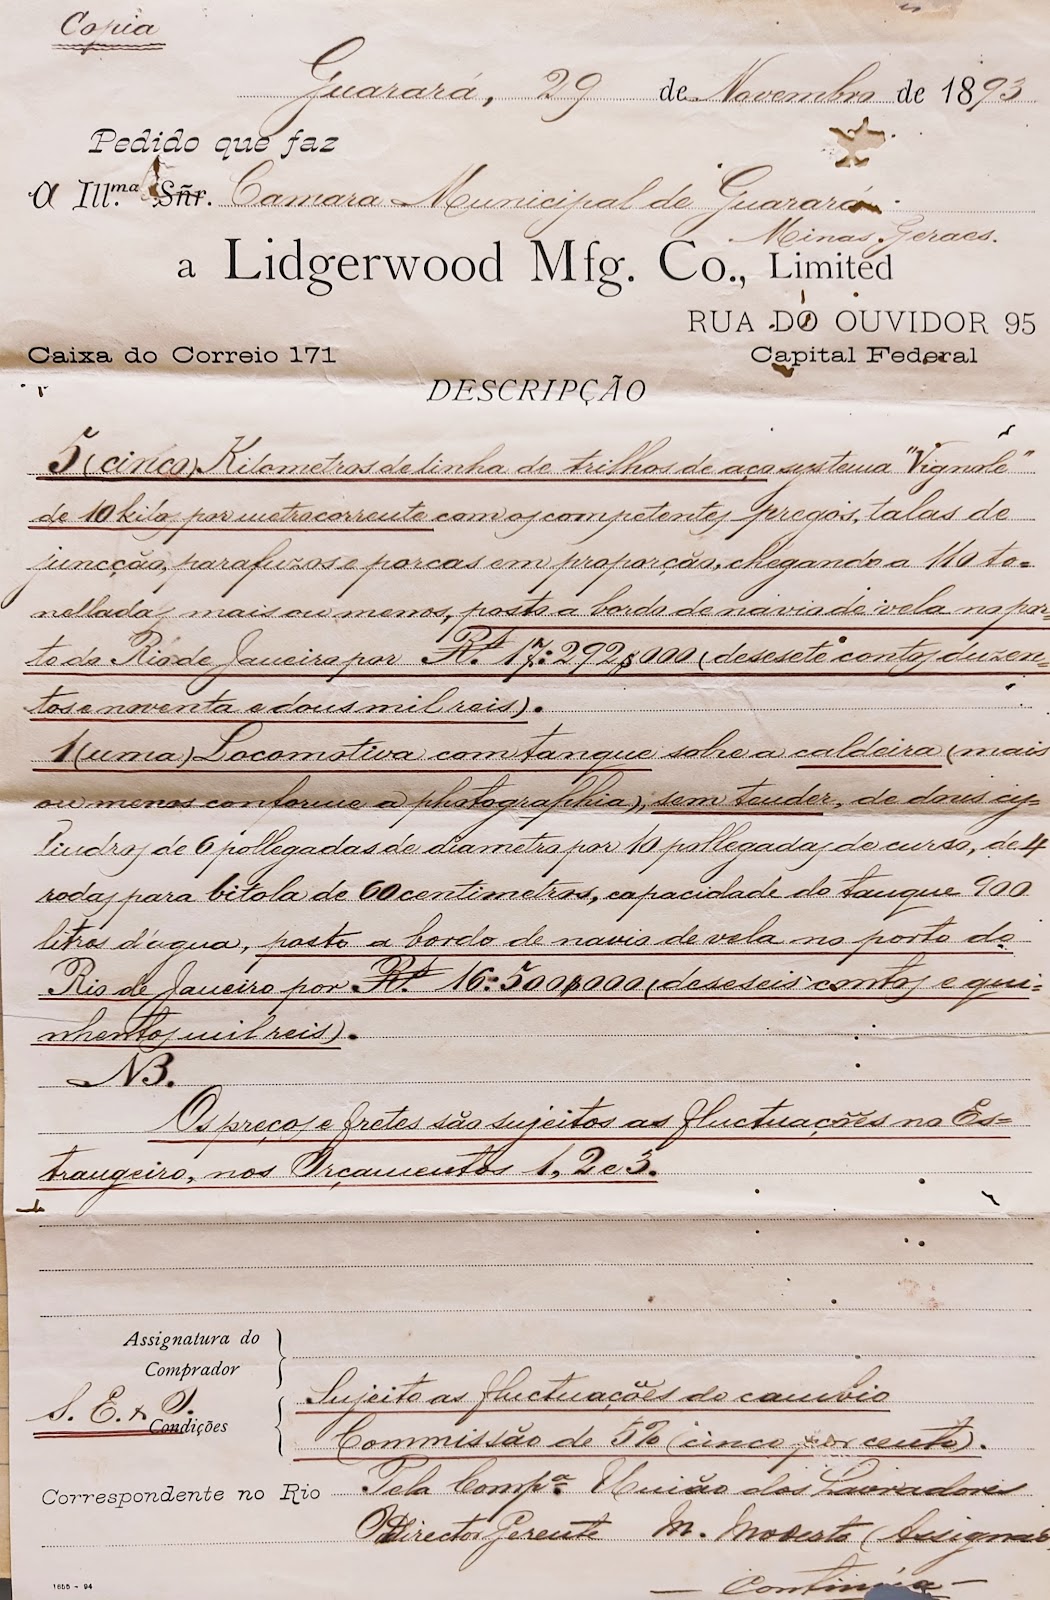 Copia
Guarará, 29 de Novembro de 1893
Pedido que faz
A Ill.ma Sñr. Camara Municipal de Guarará
Minas Geraes.
a Lidgerwood Mfg. Co., Limited
RUA DO OUVIDOR 95
Caixa do Correio 171 Capital Federal
DESCRIPÇÃO
5 (cinco) Kilometros de linha de trilhos de aço systema "Vignole"
de 10 kilos por metro corrente com os competentes pregos, talas de
juncção, parafuzos e porcas em proporção, chegando a 110 to-
nelladas mais ou menos, posto a bordo de navio de vela no por-
to do Rio de Janeiro por Rs. 17:292$000 (desesete contos duzen-
tos e noventa e dous mil reis).
1 (uma) Locomotiva com tanque sobre a caldeira (mais
ou menos conforme a photographia), sem tender, de dous cy-
lindros de 6 pollegadas de diametro por 10 pollegadas de curso, de 4
rodas para bitola de 60 centimetros, capacidade do tanque 900
litros d'agua, posto a bordo de navio de vela no porto do
Rio de Janeiro por Rs. 16:500$000 (deseseis contos e qui-
nhentos mil reis).
NB.
Os preços e fretes são sujeitos as fluctuações no Es-
trangeiro, nos Orçamentos 1, 2 e 3.
Assignatura do
Comprador
S. E. & O.
Condições
Sujeito as fluctuações do cambio
Commissão de 5% (cinco por cento).
Correspondente no Rio Pela Comp.a União dos Lavradores
Director Gerente M. (Assignado
— Continúa —
1655 - 94